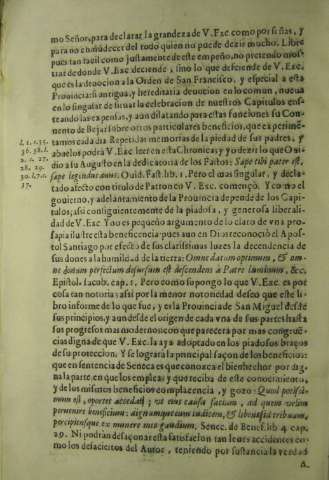 mo Señor, para declarar la grandeza de V. Exc como por señas, y
para no enmudecer del todo quien no puede dezir mucho. Libre
pues tan facil como justamente de este empeño, no pretendo mos-
trar de donde V. Exc deciende, sino lo que defiende de V. Exc.
que es la deuocion a la Orden de San Francisco, y especial a esta
Prouincia: si antigua, y hereditaria deuocion en lo comun, nueua
en lo singular de situar la celebracion de nuestros Capitulos
tandolas expensas, y aun dilatando para estas funciones su Con-
uento de Bejar sobre otros particulares beneficios, que experime-
tamos cada dia Repetidas memorias de la piedad de sus padres, y
abuelos podrà V. Exc leer en esta Chronica: y yo dezir lo que Oui-
dio a su Augusto en la dedicatoria de los Fastos: Sæpe tibi pater est,
sæpe legendus auus. Ouid. Fast. lib. 1. Pero el mas singular, y decla-
tado afecto con titulo de Patron en V. Exc. començò. Y como el
gouierno, y adelantamiento de la Prouincia depende de los Capi-
tulos; assi consiguientemente de la piadosa, y generosa liberali-
dad de V. Exc. Y no es pequeño argumento de lo claro de vna pro-
sapia ilustre esta beneficencia: pues aun en Dios reconociò el Apos-
tol Santiago por efecto de sus clarissimas luzes la decendencia de
sus dones a la humildad de la tierra: Omne datum optimum, & om-
ne donum perfectum desursum est descendens à Patre luminum, &c.
Epistol. Iacob. cap. 1. Pero como supongo lo que V. Exc. es por
cosa tan notoria; assi por la menor notoriedad deseo que este li-
bro informe de lo que fue, y es la Prouincia de San Miguel desde
sus principios, y aun desde el origen de cada vna de sus partes hasta
sus progresos mas modernos con que parecerà por mas congrue-
cias digna de que V. Exc. la aya adoptado en los piadosos braços
de su proteccion. Y se lograrà la principal façon de los beneficios:
que en sentencia de Seneca es que conozca el bienhechor por dig-
na la parte, en que los emplea: y que reciba de este conocimiento,
y de los mismos beneficios complacencia, y gozo: Quod possi-
num est, oportet accedat; vt eius causa faciam, ad quem volam
peruenire beneficium: dignumque eum iudicem, & libens id tribuam,
percipiensque ex munere meo gaudium. Senec. de Benef. lib 4 cap.
29. Ni podran desaçonar esta satisfacion tan leues accidentes co-
mo los defacicitos del Autor, teniendo por sustancia la verdad